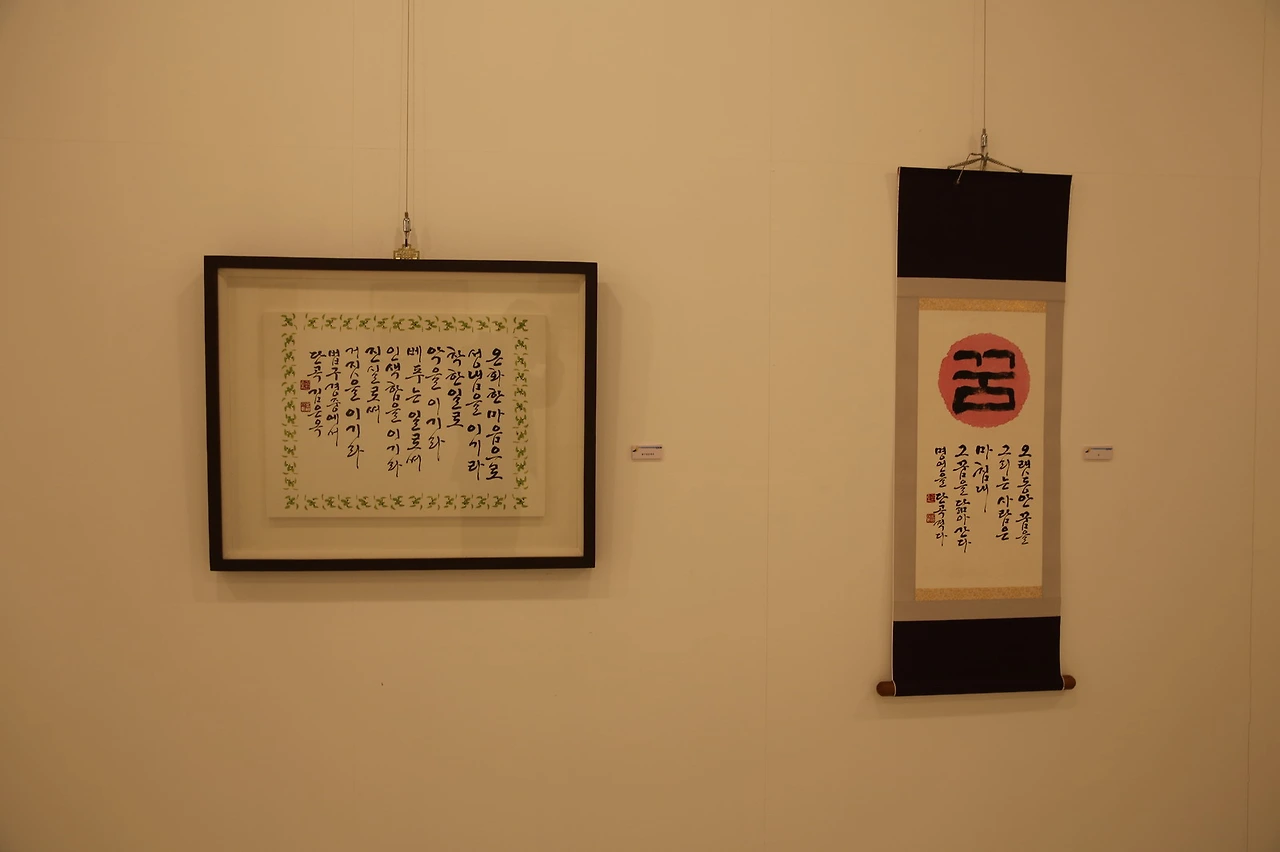 온화한 마음으로
성냄을 이기라
착한일로
악을 이기라
베푸는 일로써
인색함을 이기라
진실로써
거짓을 이기라
법구경중에서
단곡 김은옥
꿈
오랫동안 꿈을
그리는 사람은
마침내
그 꿈을 닮아 간다
명언을 단곡 적다